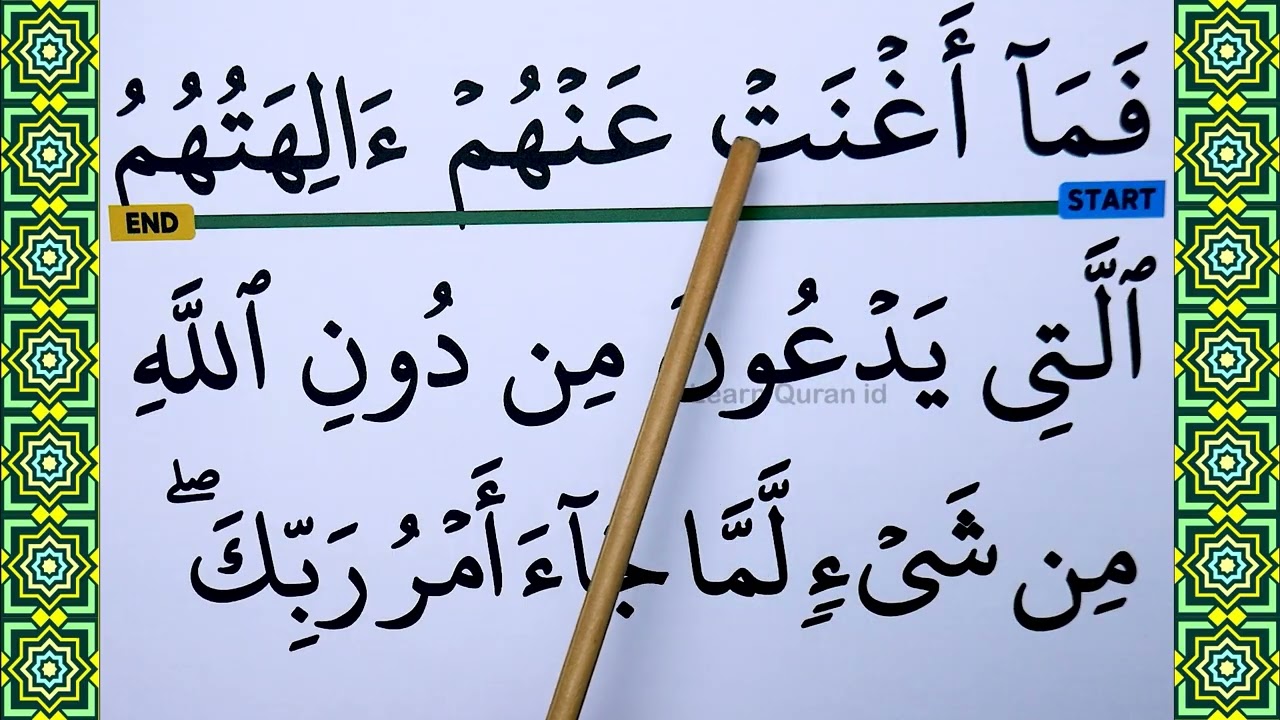 فَمَآ أَغْنَتْ عَنْهُمْ ءَالِهَتُهُمُ
END START
ٱلَّتِى يَدْعُونَ مِن دُونِ ٱللَّهِ
Learn Quran id
مِن شَىْءٍ لَّمَّا جَآءَ أَمْرُ رَبِّكَ ۖ